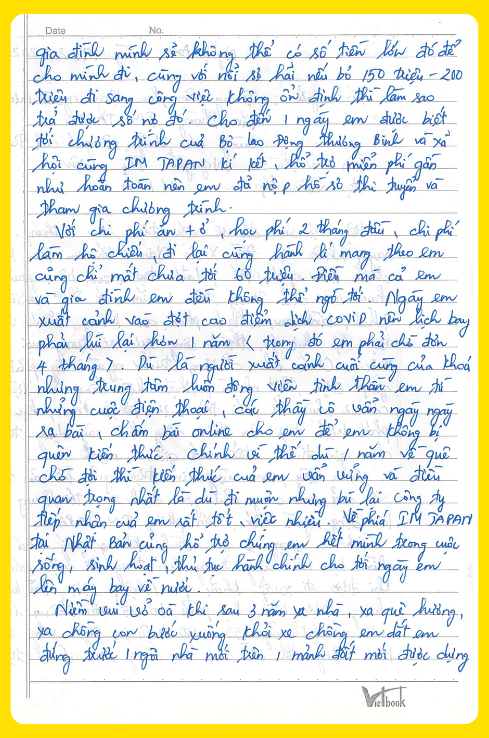 Date No.
gia đình mình sẽ không thể có số tiền lớn đó để
cho mình đi, cũng với nỗi sợ hãi nếu bỏ 150 triệu - 200
triệu đi sang công việc không ổn định thì làm sao
trả được số nợ đó. Cho đến 1 ngày em được biết
tới chương trình của Bộ lao động thương Binh và xã
hội cùng IM JAPAN kí kết, hỗ trợ miễn phí gần
như hoàn toàn nên em đã nộp hồ sơ thi tuyển và
tham gia chương trình.
Với chi phí ăn + ở, học phí 2 tháng đầu, chi phí
làm hộ chiếu, đi lại cùng hành lí mang theo em
cũng chỉ mất chưa tới 60 triệu. Điều mà cả em
và gia đình em đều không thể ngờ tới. Ngày em
xuất cảnh vào đợt cao điểm dịch covip nên lịch bay
phải lùi lại hơn 1 năm < trong đó em phải chờ đến
4 tháng >. Dù là người xuất cảnh cuối cùng của khoá
nhưng trung tâm luôn động viên tinh thần em từ
những cuộc điện thoại, các thầy cô vẫn ngày ngày
ra bài, chấm bài online cho em để em không bị
quên kiến thức. Chính vì thế dù 1 năm về quê
chờ đợi thì kiến thức của em vẫn vững và điều
quan trọng nhất là dù đi muộn nhưng bù lại công ty
tiếp nhận của em rất tốt, việc nhiều. Về phía IM JAPAN
tại Nhật Bản cũng hỗ trợ chúng em hết mình trong cuộc
sống, sinh hoạt, thủ tục hành chính cho tới ngày em
lên máy bay về nước.
Niềm vui vỡ oà khi sau 3 năm xa nhà, xa quê hương,
xa chồng con bước xuống khỏi xe chồng em dắt em
đứng trước 1 ngôi nhà mới trên 1 mảnh đất mới được dựng
Vietbook